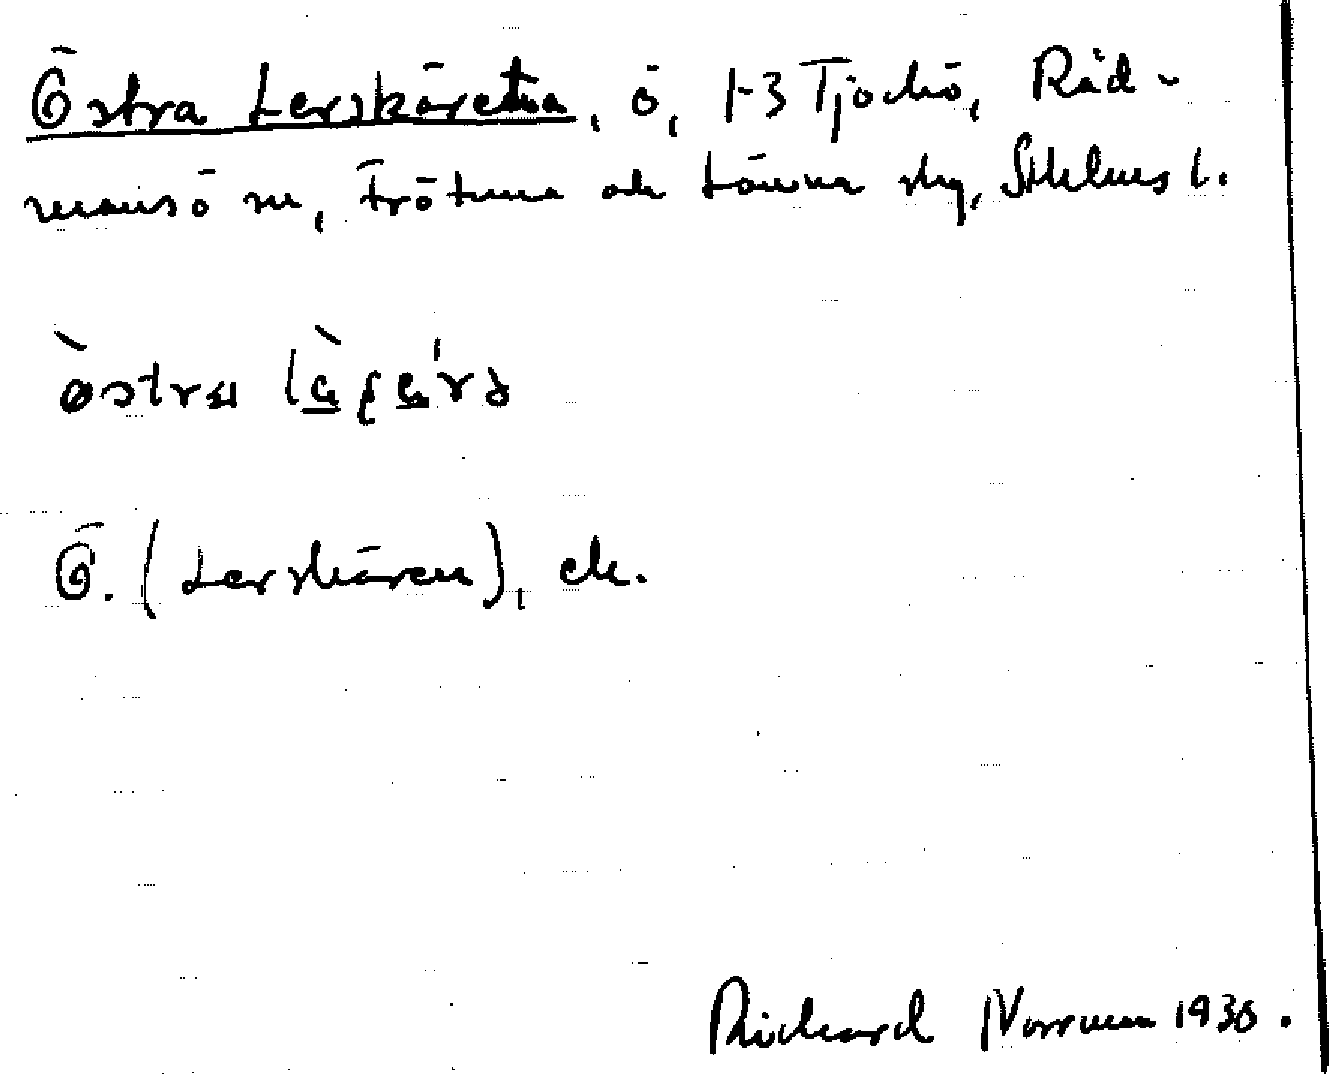 Östra Lerskären, ö, 1-3 Tjockö, Råd-
mansö sn, Frötuna och Länna skg, Sthlms l.
Ö. (Lerskären), ek.
Richard Norrman 1936.